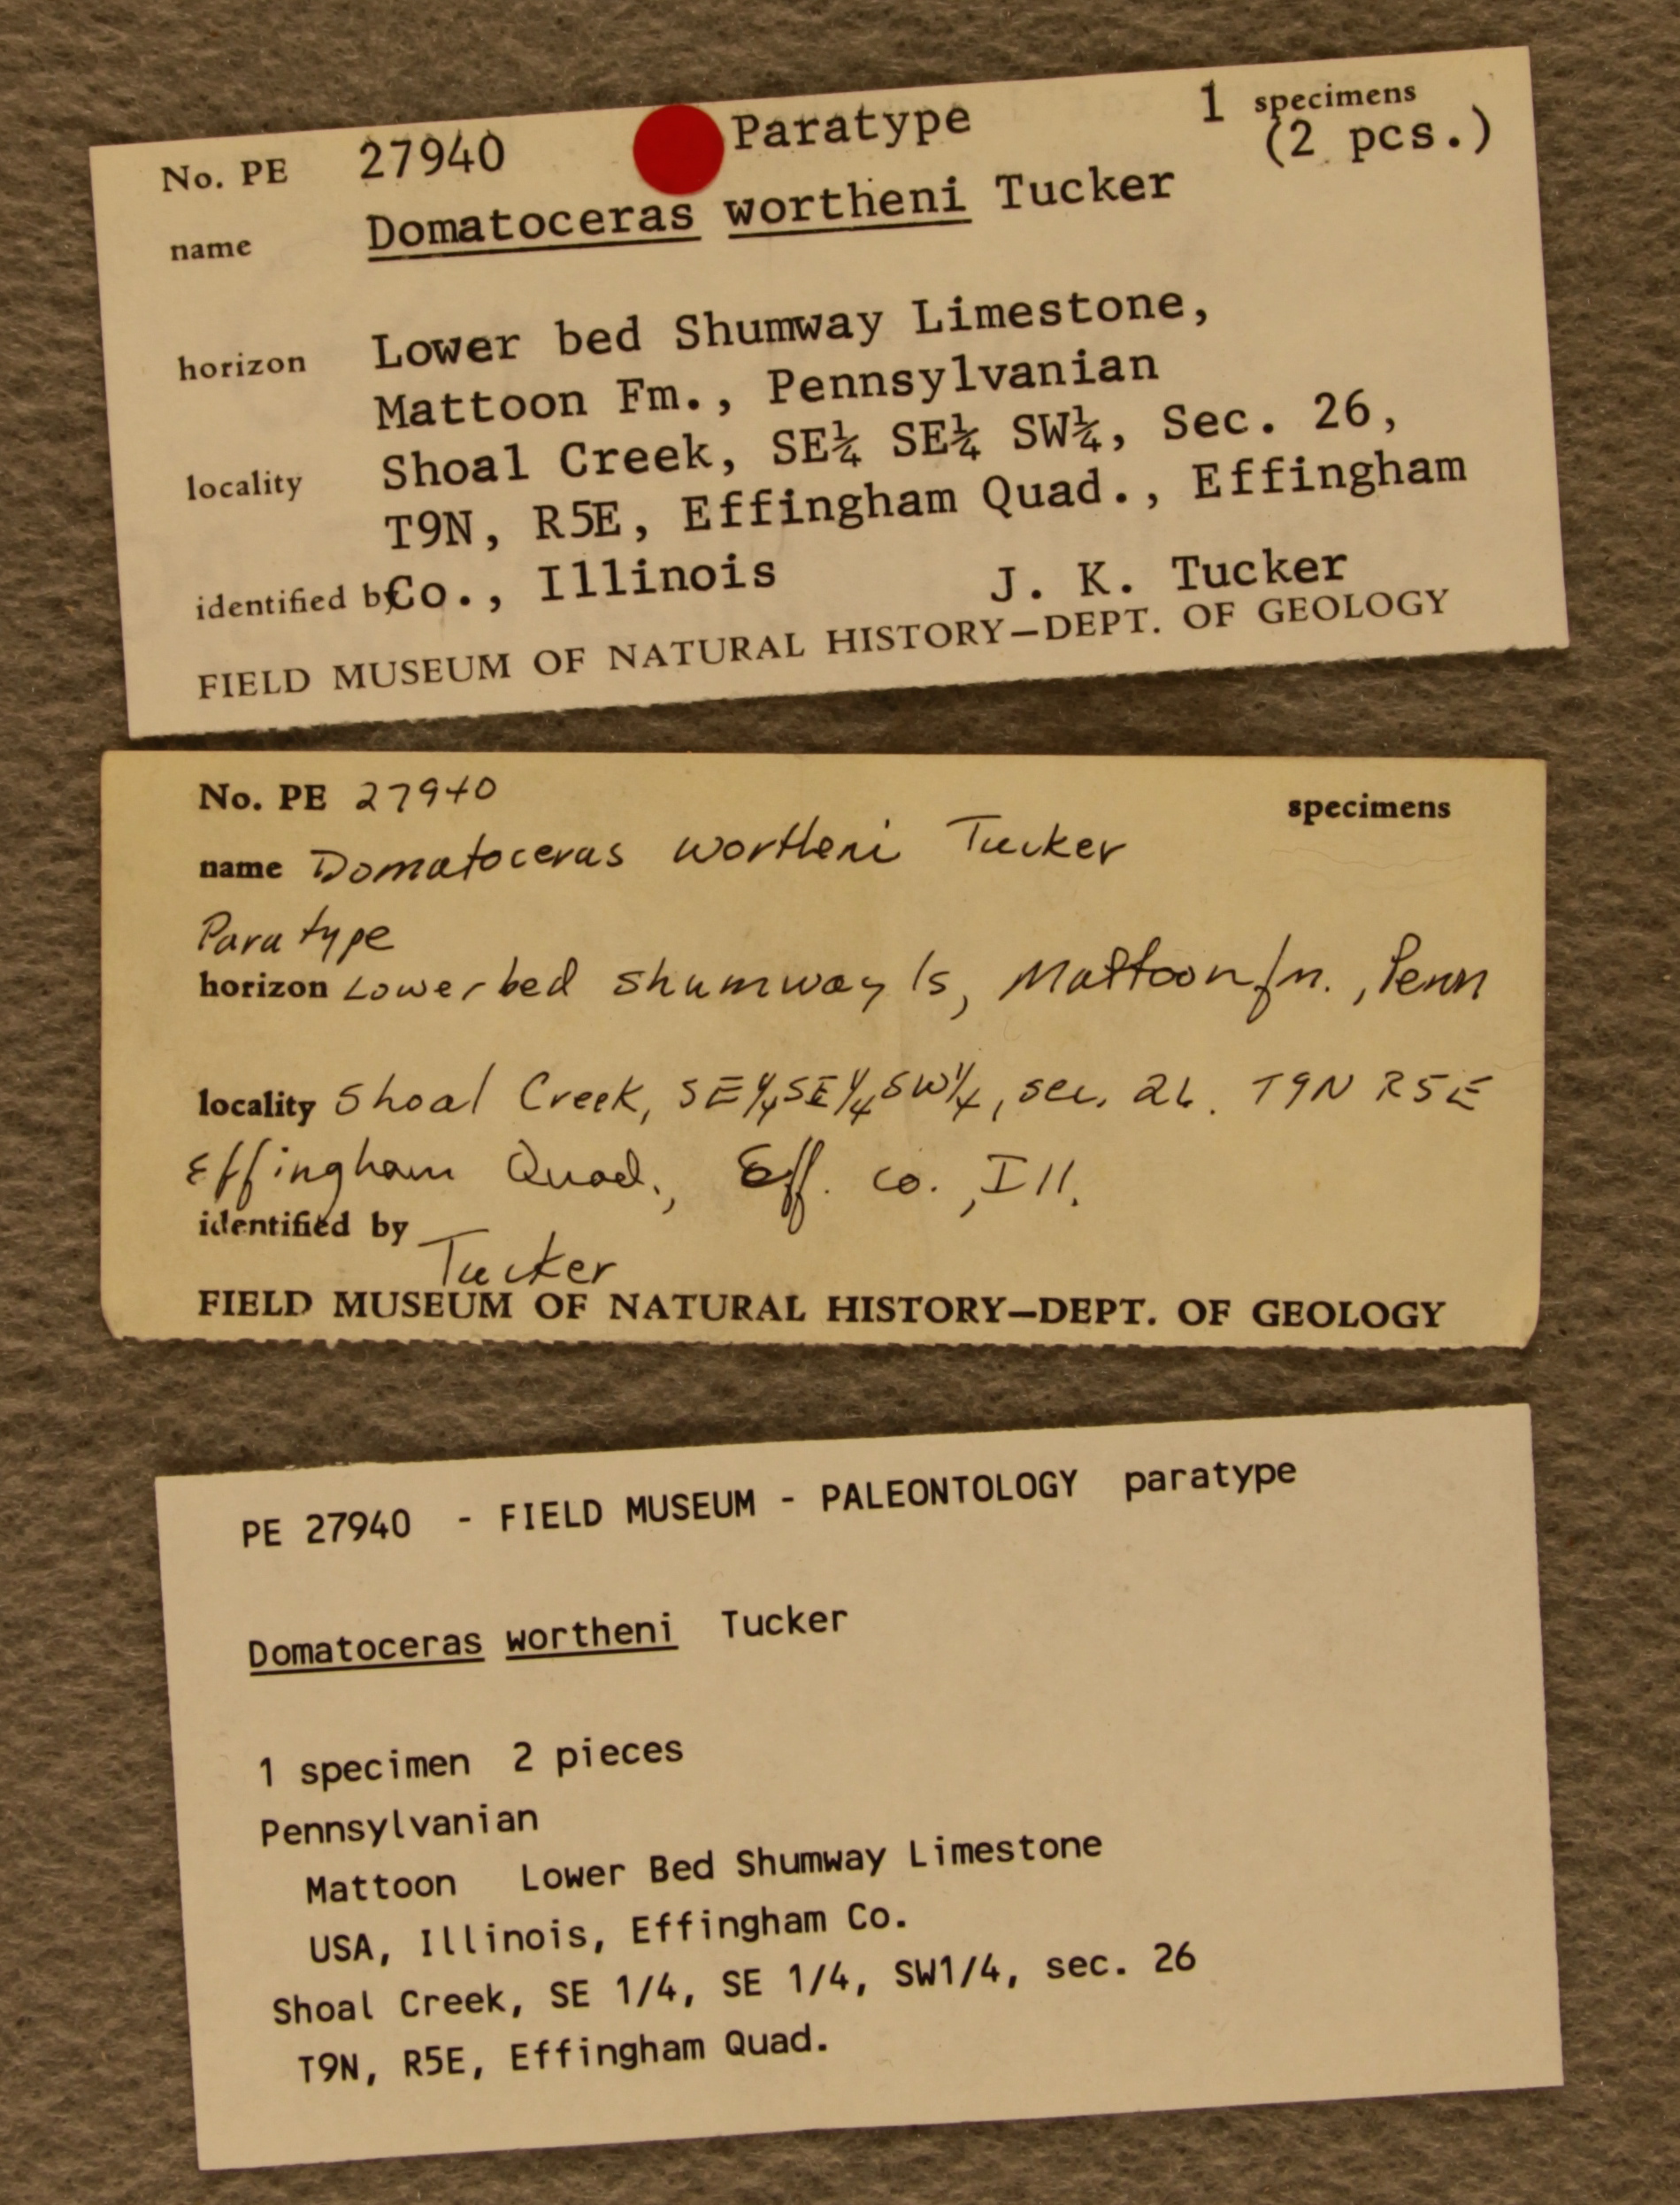 No. PE 27940 Paratype 1 specimens
(2 pcs.)
name Domatoceras wortheni Tucker
horizon Lower bed Shumway Limestone,
Mattoon Fm., Pennsylvanian
locality Shoal Creek, SE¼ SE¼ SW¼, Sec. 26,
T9N, R5E, Effingham Quad., Effingham
identified by Co., Illinois J. K. Tucker
FIELD MUSEUM OF NATURAL HISTORY—DEPT. OF GEOLOGY
No. PE 27940 specimens
name Domatoceras wortheni Tucker
Paratype
horizon Lower bed Shumway ls, Mattoon fm., Penn
locality Shoal Creek, SE 1/4 SE 1/4 SW 1/4, sec. 26. T9N R5E
Effingham Quad., Eff. co., Ill.
identified by Tucker
FIELD MUSEUM OF NATURAL HISTORY—DEPT. OF GEOLOGY
PE 27940 - FIELD MUSEUM - PALEONTOLOGY paratype
Domatoceras wortheni Tucker
1 specimen 2 pieces
Pennsylvanian
Mattoon Lower Bed Shumway Limestone
USA, Illinois, Effingham Co.
Shoal Creek, SE 1/4, SE 1/4, SW1/4, sec. 26
T9N, R5E, Effingham Quad.